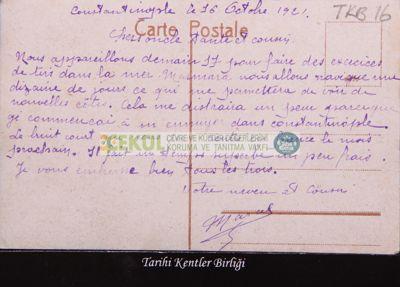 Constantinople le 16 Octobre 1921.
TKB 16
Carte Postale
Chers oncle Tante et cousin
Nous appareillons demain 17 pour faire des exercices
de tirs dans la mer Marmara nous allons rester une
dizaine de jours ce qui me permettera de voir de
nouvelles côtes. Cela me distraira un peu parceque
je commençais à m'ennuyer dans constantinople
Le bruit court
ÇEKÜL
ÇEVRE VE KÜLTÜR DEĞERLERİNİ
KORUMA VE TANITMA VAKFI
le mois
prochain. Il fait un temps superbe un peu frais.
Je vous embrasse bien tous les trois.
Votre neveu et cousin
Tarihi Kentler Birliği